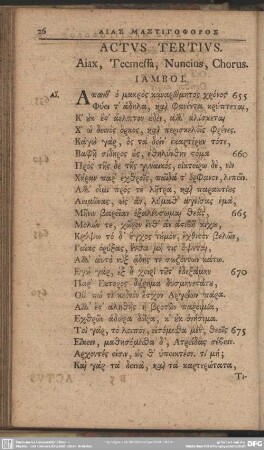 26 ΑΙΑΣ ΜΑΣΤΙΓΟΦΟΡΟΣ
ACTVS TERTIVS.
Aiax, Tecmessa, Nuncius, Chorus.
ΙΑΜΒΟΙ.
ΑΙ. Ἅπανθ' ὁ μακρὸς κἀναρίθμητος χρόνος 655
Φύει τ' ἄδηλα, καὶ φανέντα κρύπτεται,
Κ' οὐκ ἔστ' ἄελπτον οὐδὲν, ἀλλ' ἁλίσκεται
Χ' ὠ δεινὸς ὅρκος, καὶ περισκελεῖς φρένες.
Κἀγὼ γὰρ, ὃς τὰ δείν' ἐκαρτέρουν τότε,
Βαφῇ σίδηρος ὣς, ἐθηλύνθην στόμα 660
Πρὸς τῆς δὲ τῆς γυναικὸς, οἰκτείρω δέ, νιν
Χήραν παρ' ἐχθροῖς, παῖδά τ' ὀρφανὸν λιπεῖν.
Ἀλλ' εἶμι πρός τε λουτρὰ, καὶ παρακτίους
Λειμῶνας, ὡς ἂν, λύμαθ' ἁγνίσας ἐμὰ,
Μῆνιν βαρεῖαν ἐξαλεύσωμαι θεᾶς, 665
Μολών τε, χῶρον ἔνθ' ἂν ἀστιβῆ κίχω,
Κρύψω τόδ' ἔγχος τοὐμὸν, ἔχθιστον βελῶν,
Γαίας ὀρύξας, ἔνθα μή τις ὄψεται,
Ἀλλ' αὐτὸ νὺξ ᾅδης τε σωζόντων κάτω.
Ἐγὼ γὰρ, ἐξ οὗ χειρὶ τοῦτ' ἐδεξάμην 670
Παρ' Ἕκτορος δώρημα δυσμενεστάτου,
Οὔ πω τι κεδνὸν ἔσχον Ἀργείων πάρα.
Ἀλλ' ἔστ' ἀληθὴς ἡ βροτῶν παροιμία,
Ἐχθρῶν ἄδωρα δῶρα, κ' οὐκ ὀνήσιμα.
Τοιγὰρ, τὸ λοιπὸν, εἰσόμεσθα μὲν, θεοῖς 675
Εἴκειν, μαθησόμεσθα δ', Ἀτρείδας σέβειν.
Ἄρχοντές εἰσιν, ὥσθ' ὑπεικτέον. τί μή;
Καὶ γὰρ τὰ δεινὰ, καὶ τὰ καρτερώτατα,
Τι-